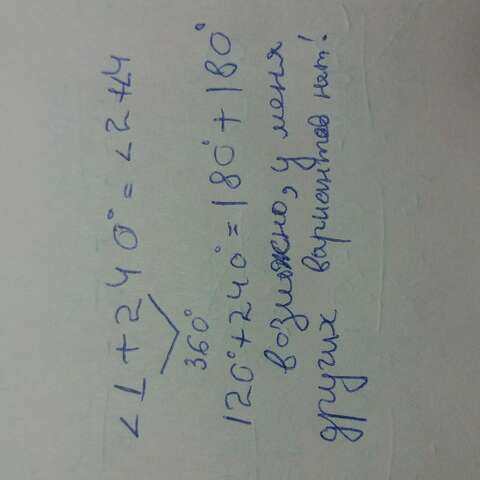 <1+240°=<2+<4
360°
120°+240°=180°+180°
возможно, у меня
других вариантов нат!